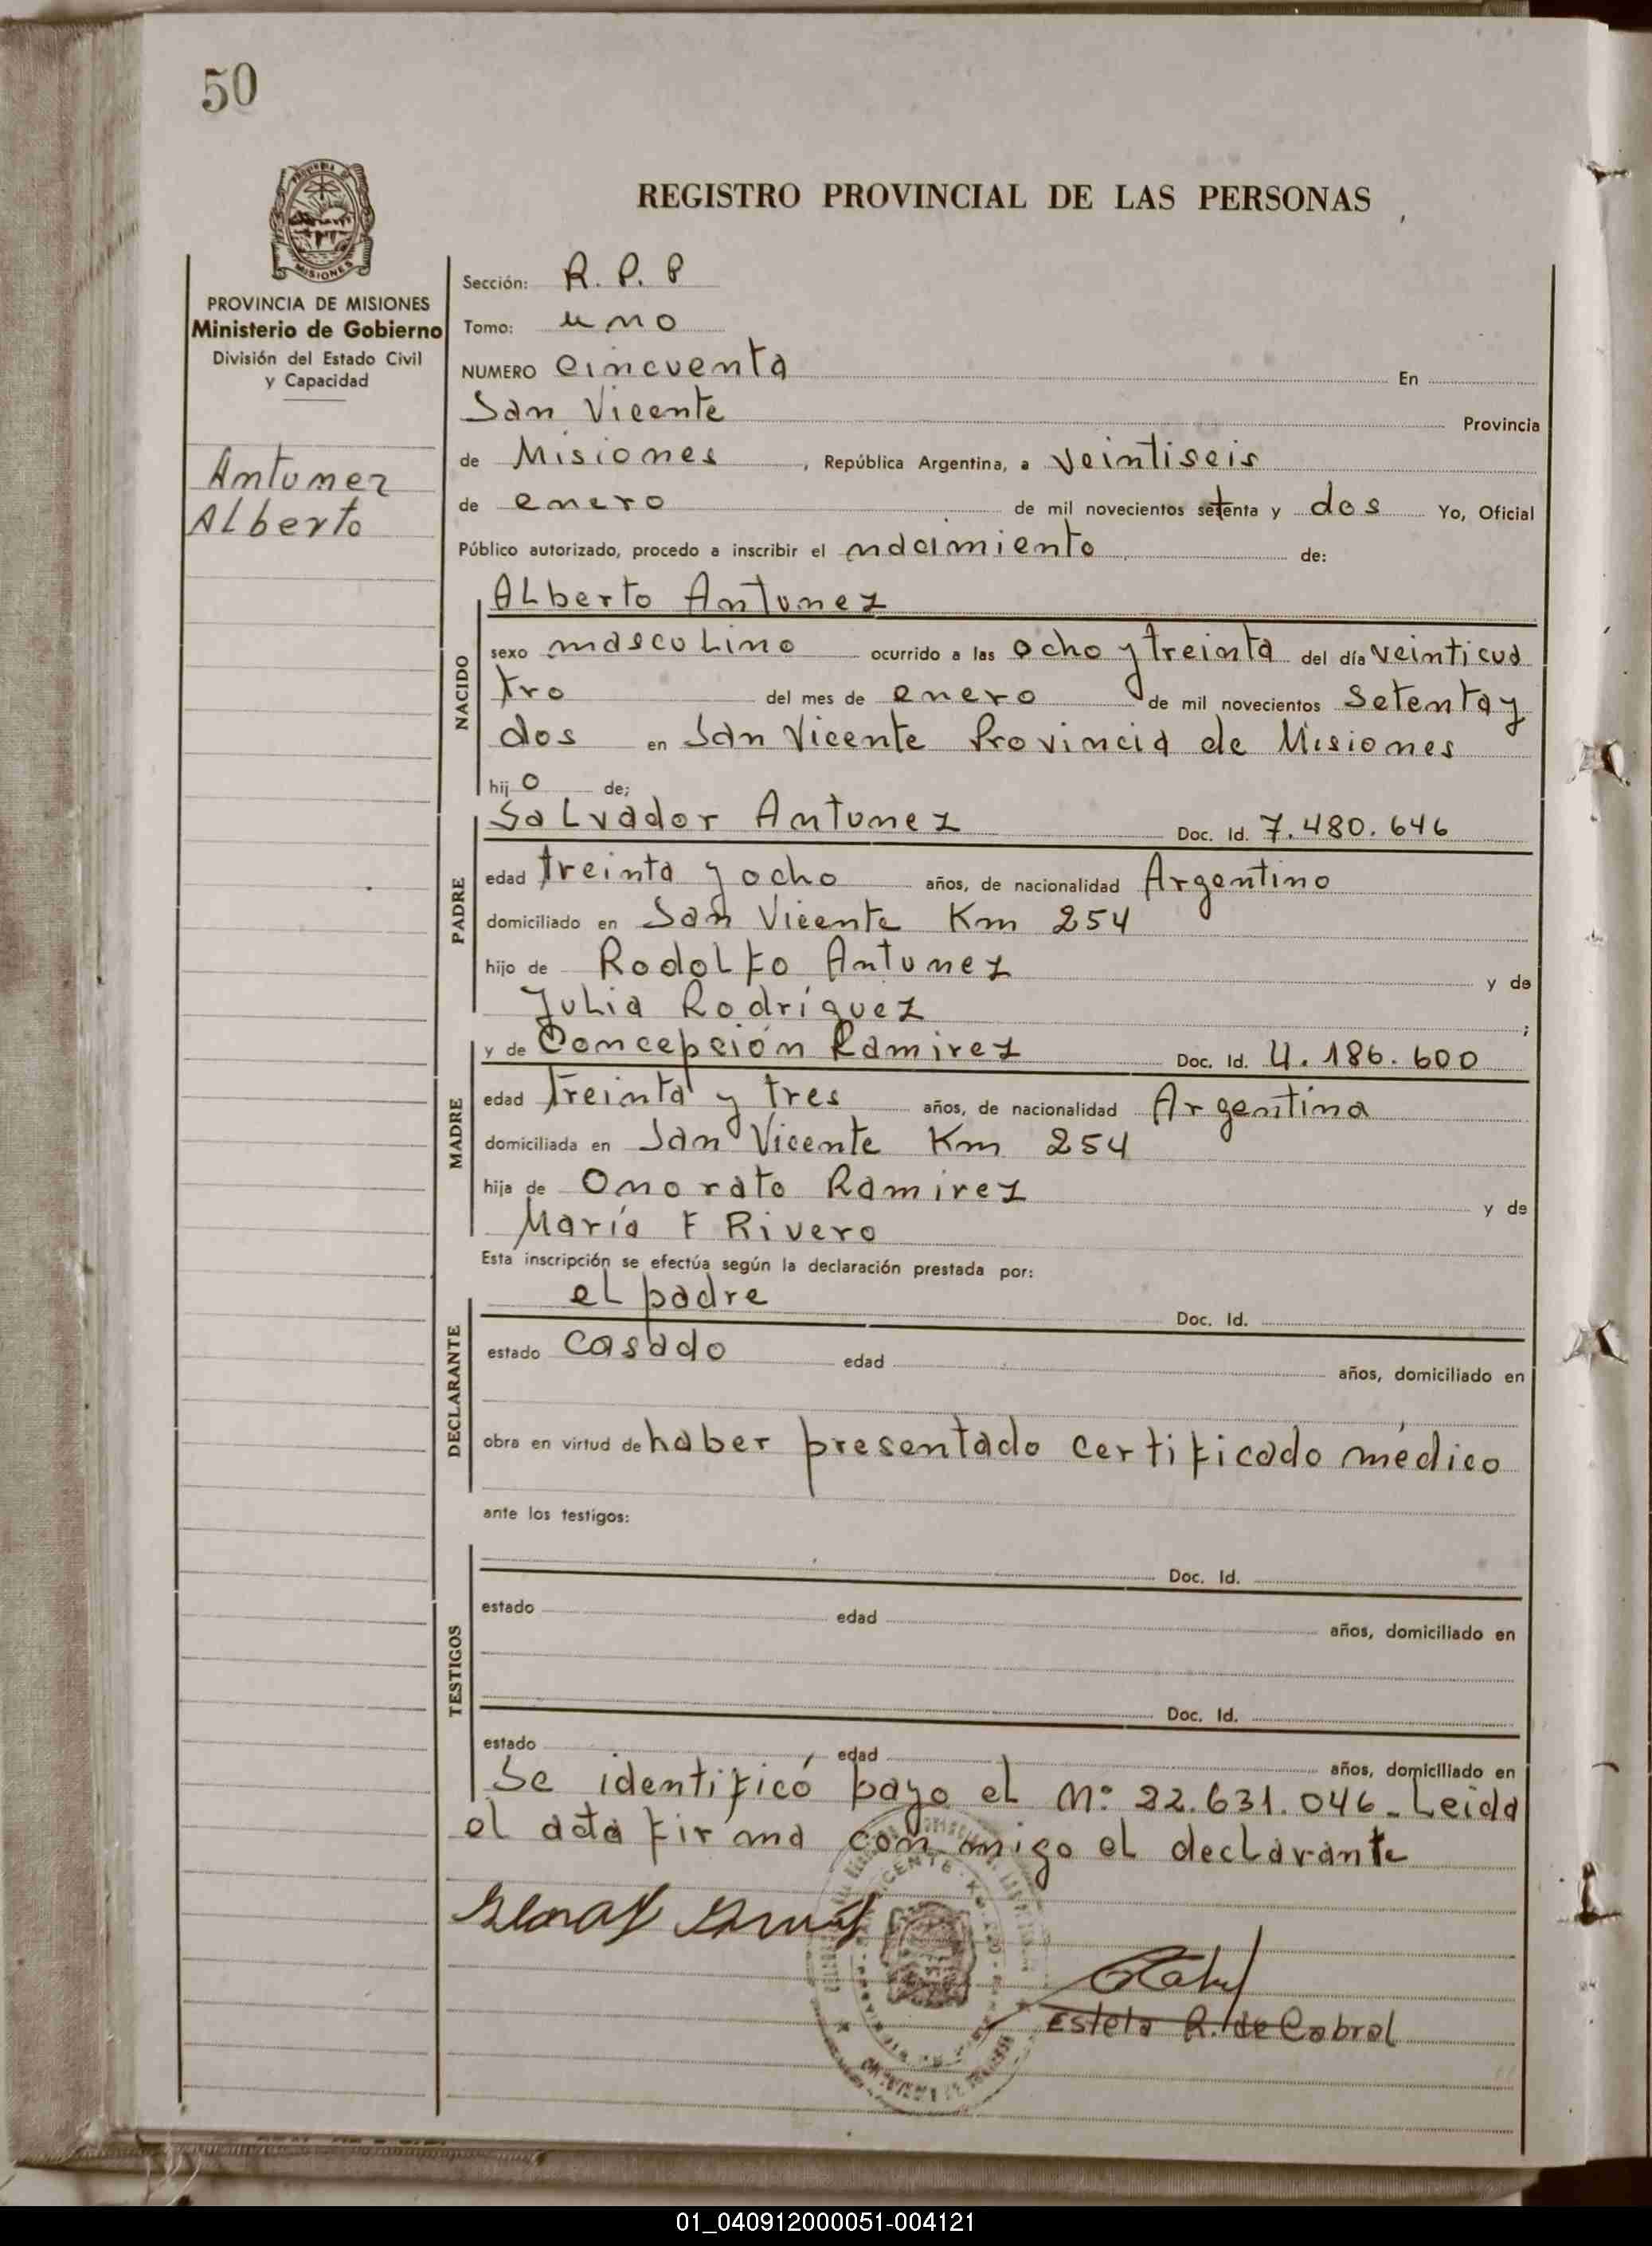 50
REGISTRO PROVINCIAL DE LAS PERSONAS
MISIONES
PROVINCIA DE MISIONES
Ministerio de Gobierno
División del Estado Civil
y Capacidad
Antunez
Alberto
Sección: R. P. P
Tomo: uno
NUMERO cincuenta En
San Vicente Provincia
de Misiones, República Argentina, a veintiseis
de enero de mil novecientos setenta y dos Yo, Oficial
Público autorizado, procedo a inscribir el nacimiento de:
NACIDO
Alberto Antunez
sexo masculino ocurrido a las ocho y treinta del día veinticua
tro del mes de enero de mil novecientos setenta y
dos en San Vicente Provincia de Misiones
hijo de;
PADRE
Salvador Antunez Doc. Id. 7.480.646
edad treinta y ocho años, de nacionalidad Argentino
domiciliado en San Vicente Km 254
hijo de Rodolfo Antunez y de
Julia Rodríguez;
MADRE
y de Concepción Ramirez Doc. Id. 4.186.600
edad treinta y tres años, de nacionalidad Argentina
domiciliada en San Vicente Km 254
hija de Onorato Ramirez y de
María F Rivero
Esta inscripción se efectúa según la declaración prestada por:
DECLARANTE
el padre Doc. Id.
estado casado edad años, domiciliado en
obra en virtud de haber presentado certificado médico
ante los testigos:
TESTIGOS
Doc. Id.
estado edad años, domiciliado en
Doc. Id.
estado edad años, domiciliado en
Se identificó bayo el Nº 22.631.046_Leida
el acta firma conmigo el declarante
Estela R. de Cabral
01_040912000051-004121